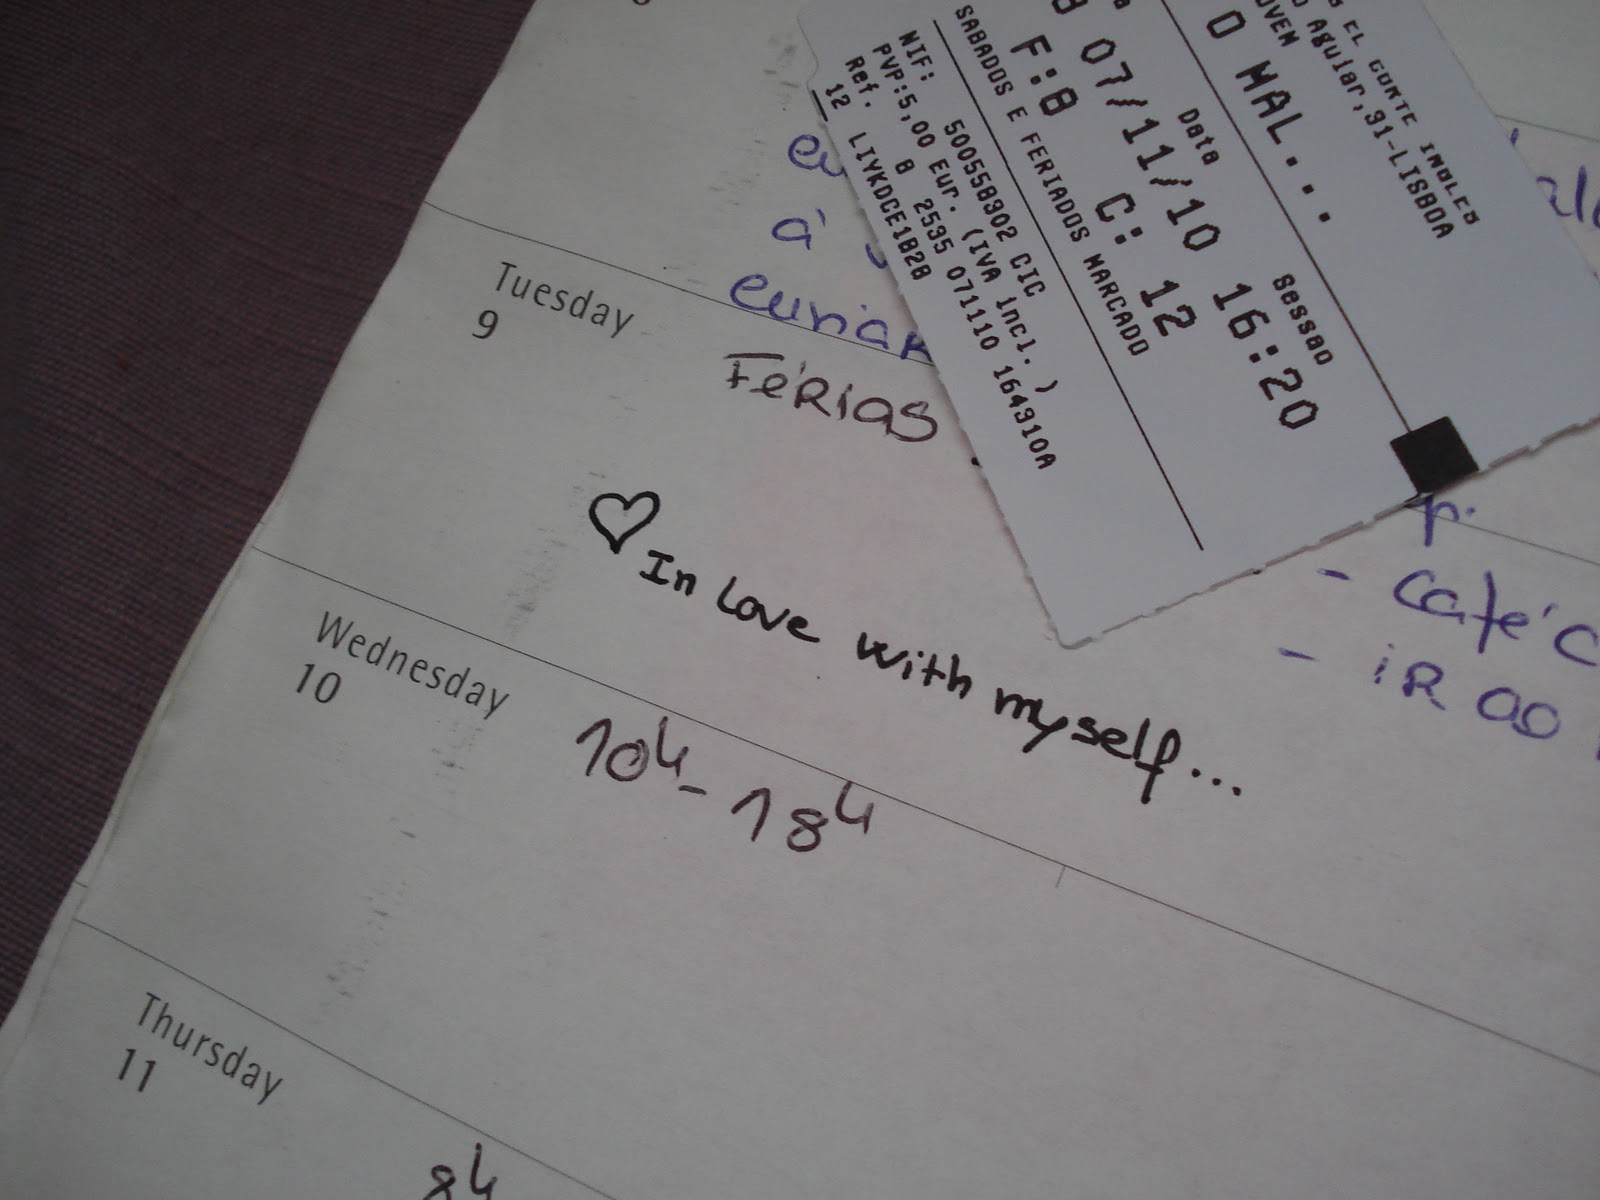 EL CORTE INGLES
Aguiar,31-LISBOA
O MAL...
Data Sessao
07/11/10 16:20
F:8 C: 12
SABADOS E FERIADOS MARCADO
NIF: 500558302 CIC
PVP:5,00 Eur. (IVA Incl.)
Ref. 8 2535 071110 164310A
12 LIYKDCE1828
à
Tuesday
9
FéRIAS
♡ In love with myself...
- café
- iR ao
Wednesday
10
10h - 18h
Thursday
11
8h